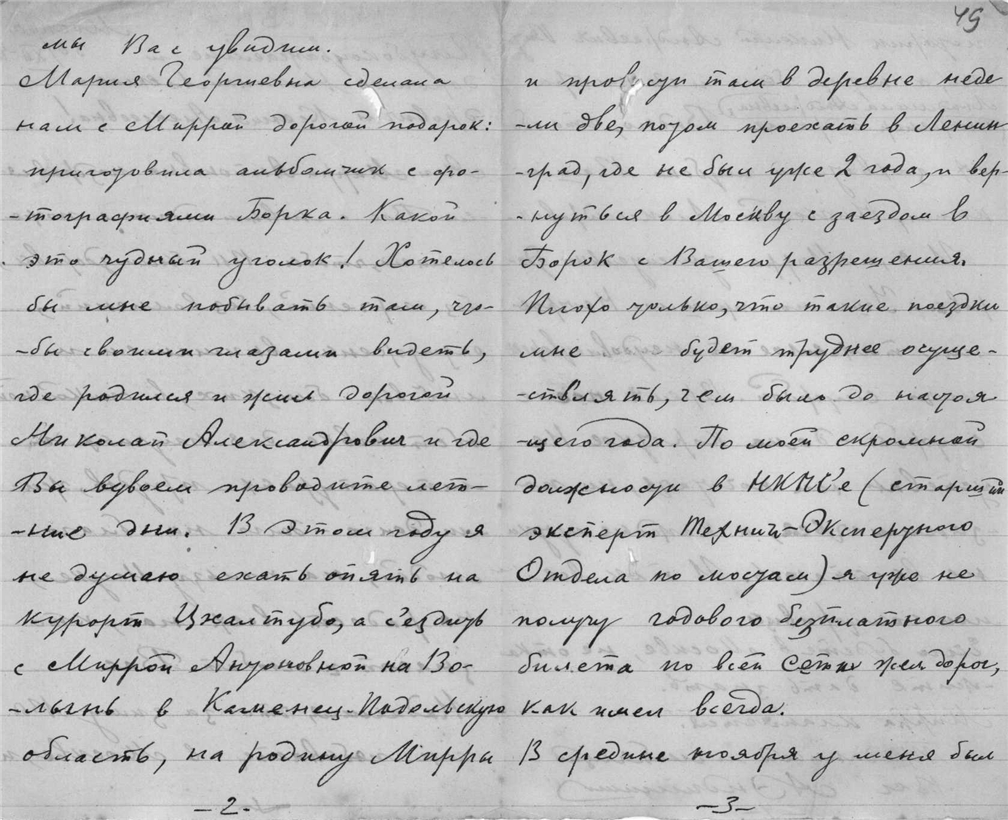 мы Вас увидим.
Мария Георгиевна сделала
нам с Миррой дорогой подарок:
приготовила альбомчик с фо-
-тографиями Борка. Какой
это чудный уголок! Хотелось
бы мне побывать там, что-
-бы своими глазами видеть,
где родился и жил дорогой
Николай Александрович и где
Вы вдвоем проводите лет-
-ние дни. В этом году я
не думаю ехать опять на
курорт Цхалтубо, а с'ездить
с Миррой Антоновной на Во-
-лынь в Каменец-Подольскую
область, на родину Мирры
-2-
49
и провести там в деревне неде
-ли две, потом проехать в Ленин
-град, где не был уже 2 года, и вер-
-нуться в Москву с заездом в
Борок с Вашего разрешения.
Плохо только, что такие поездки
мне будет труднее осуще-
-ствлять, чем было до настоя
-щего года. По моей скромной
должности в НКПС'е (старший
эксперт Технич-Экспертного
Отдела по мостам) я уже не
получу годового бесплатного
билета по всей сети жел дорог,
как имел всегда.
В средине ноября у меня был
-3-